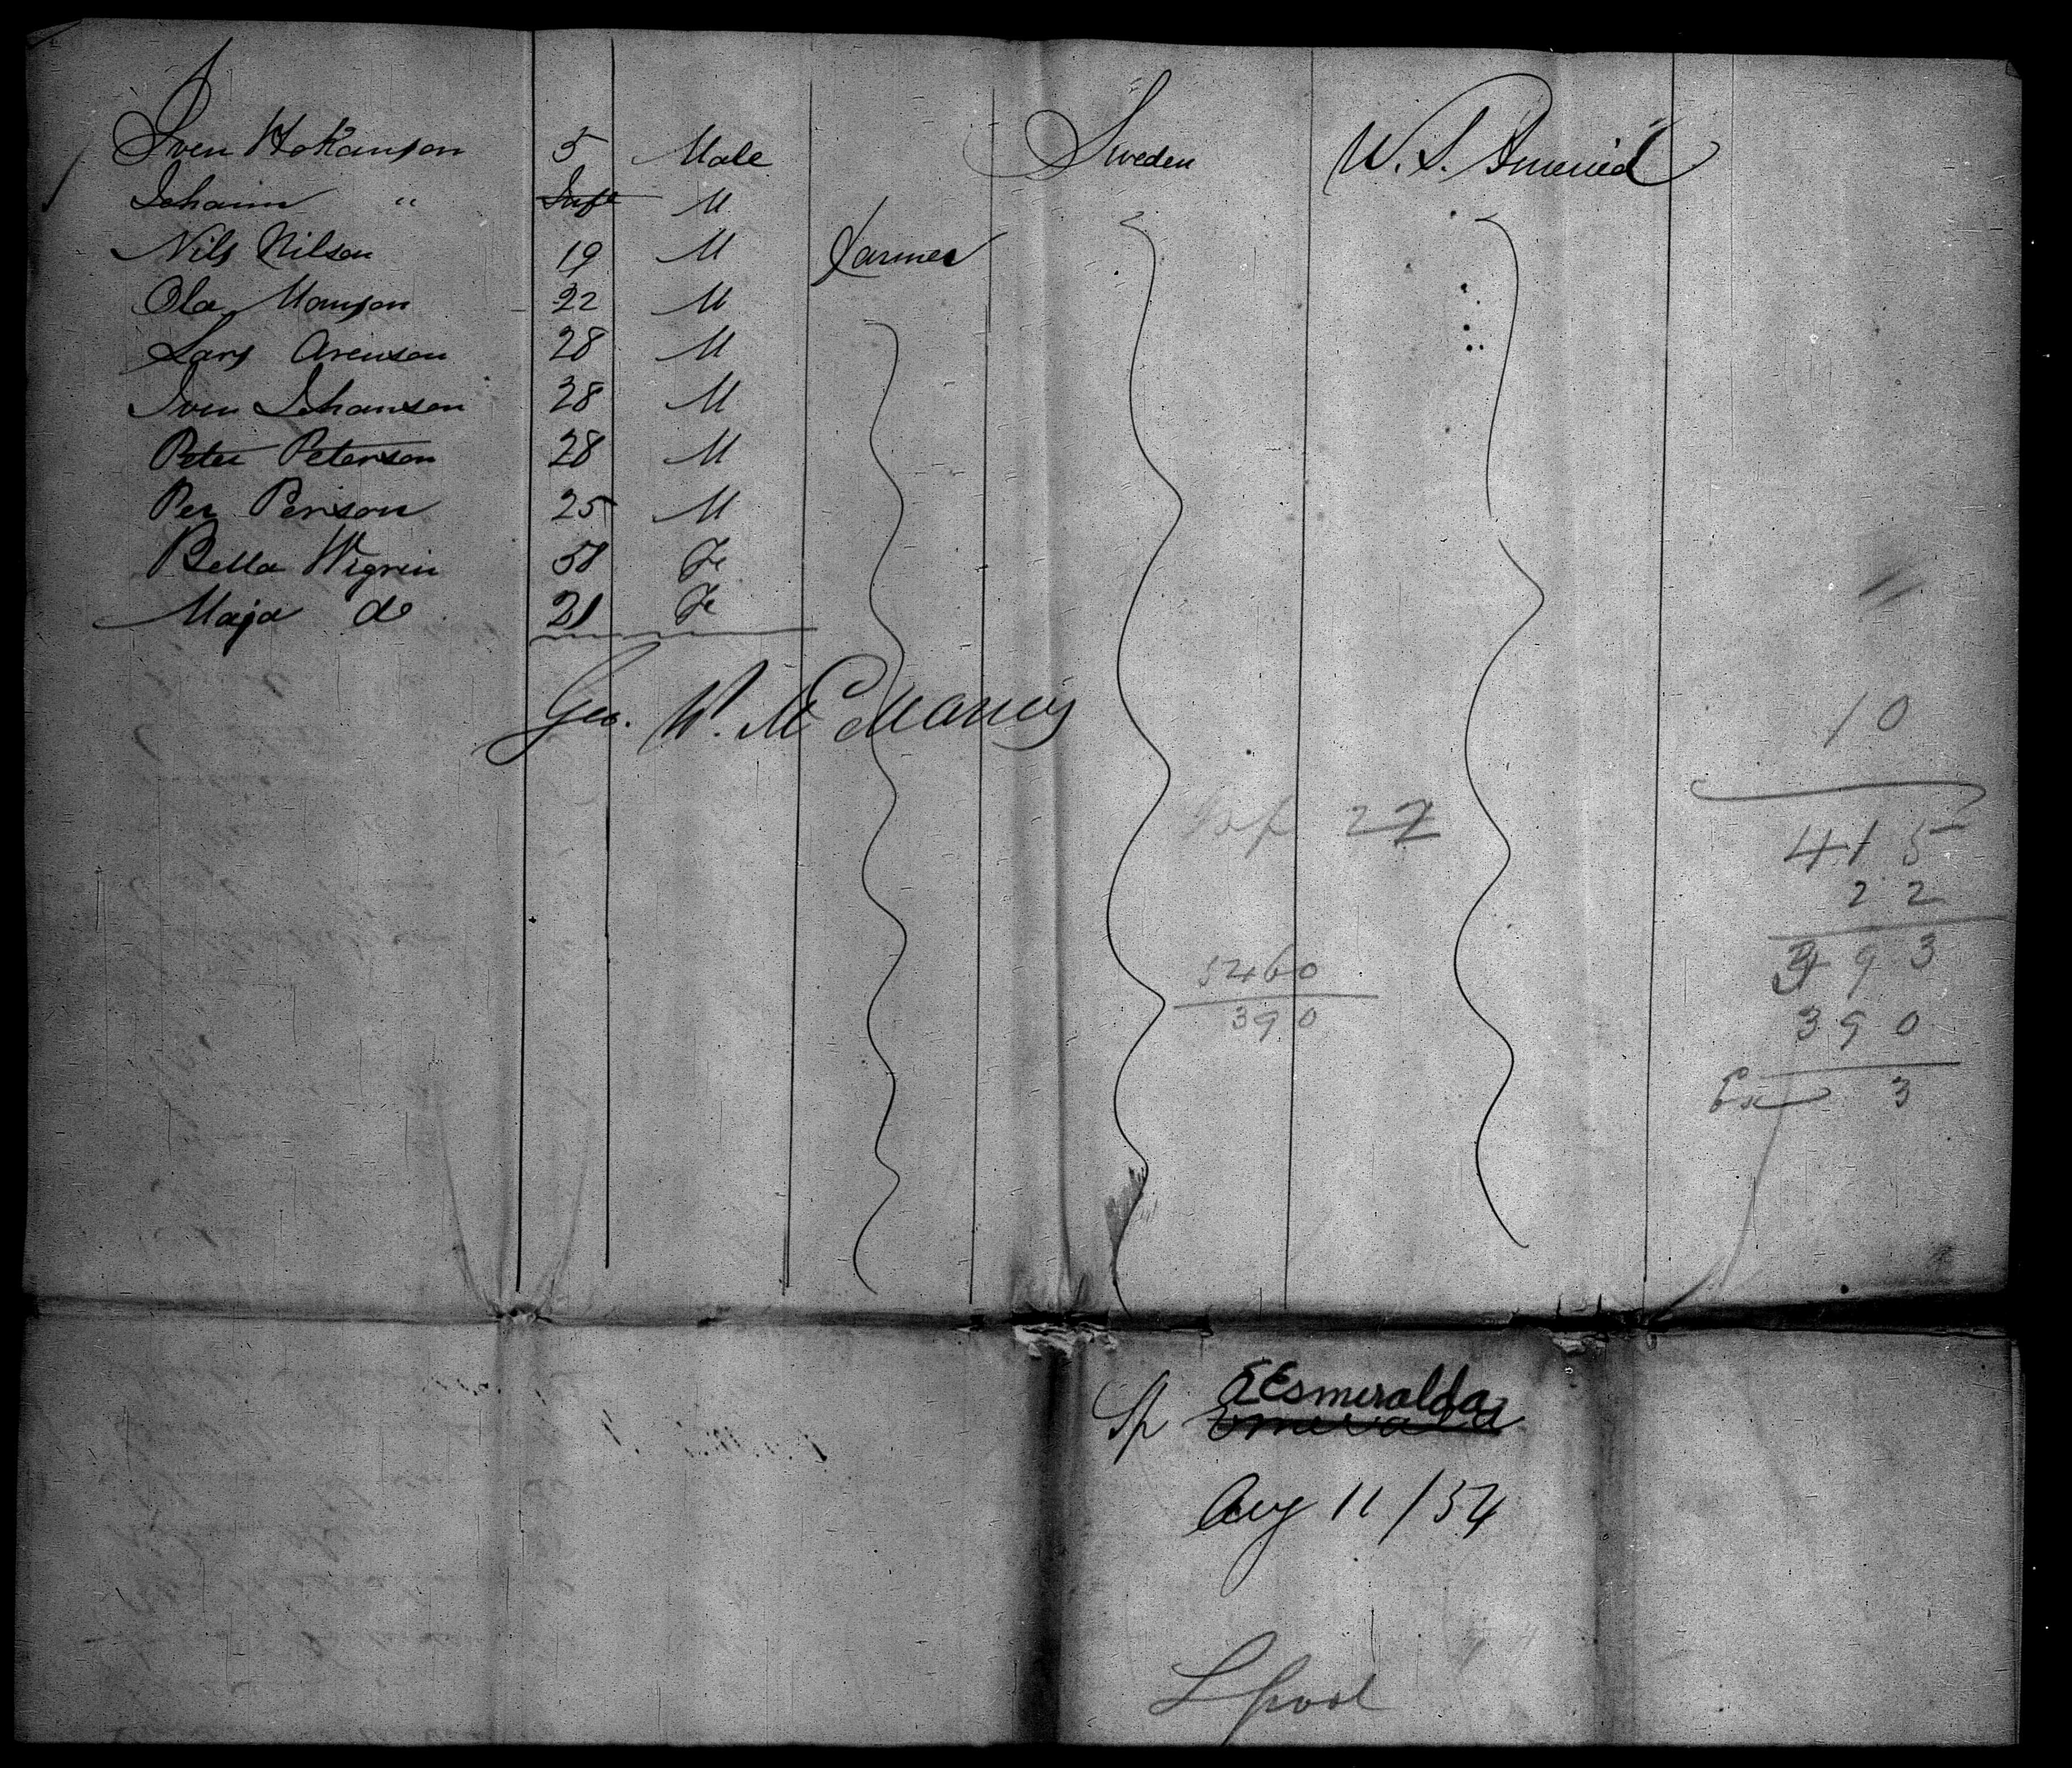 Sven Hokanson 5 Male Sweden U. S. America
Johann " Inft M
Nils Nilson 19 M Farmer
Ola Monson 22 M
Lars Arenson 28 M
Sven Johanson 28 M
Peter Peterson 28 M
Per Person 25 M
Bella Wigren 58 Fe
Maja do 21 Fe
Geo. W. McManus
10
Inf 22
415
22
393
390
3
5460
390
Sp Esmeralda
Aug 11 / 54
Lpool